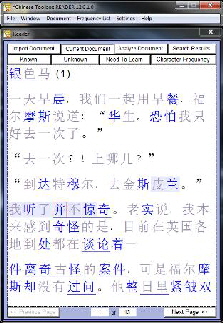 *Chinese Toolbox READER
File Window Document Frequency List Settings Help
Reader
Import Document Current Document Analyze Document Search Results
Known Unknown Need To Learn Character Frequency
银色马 (1)
一天早晨，我们一起用早餐，福
尔摩斯说道：“华生，恐怕我只
好去一次了。”
“去一次？！上哪儿？”
“到达特穆尔，去金斯皮兰。”
我听了并不惊奇。老实说，我本
来感到奇怪的是，目前在英国各
地到处都在谈论着一
件离奇古怪的案件，可是福尔摩
斯却没有过问。他整日里紧皱双
<< Previous Page of Next Page >>